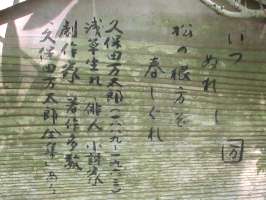 いつ
ぬれし
松の根方や
春しぐれ
久保田万太郎(一八八九~一九六三)
浅草生れ 俳人 小説家
劇作家 著作多数
「久保田万太郎全集」あり